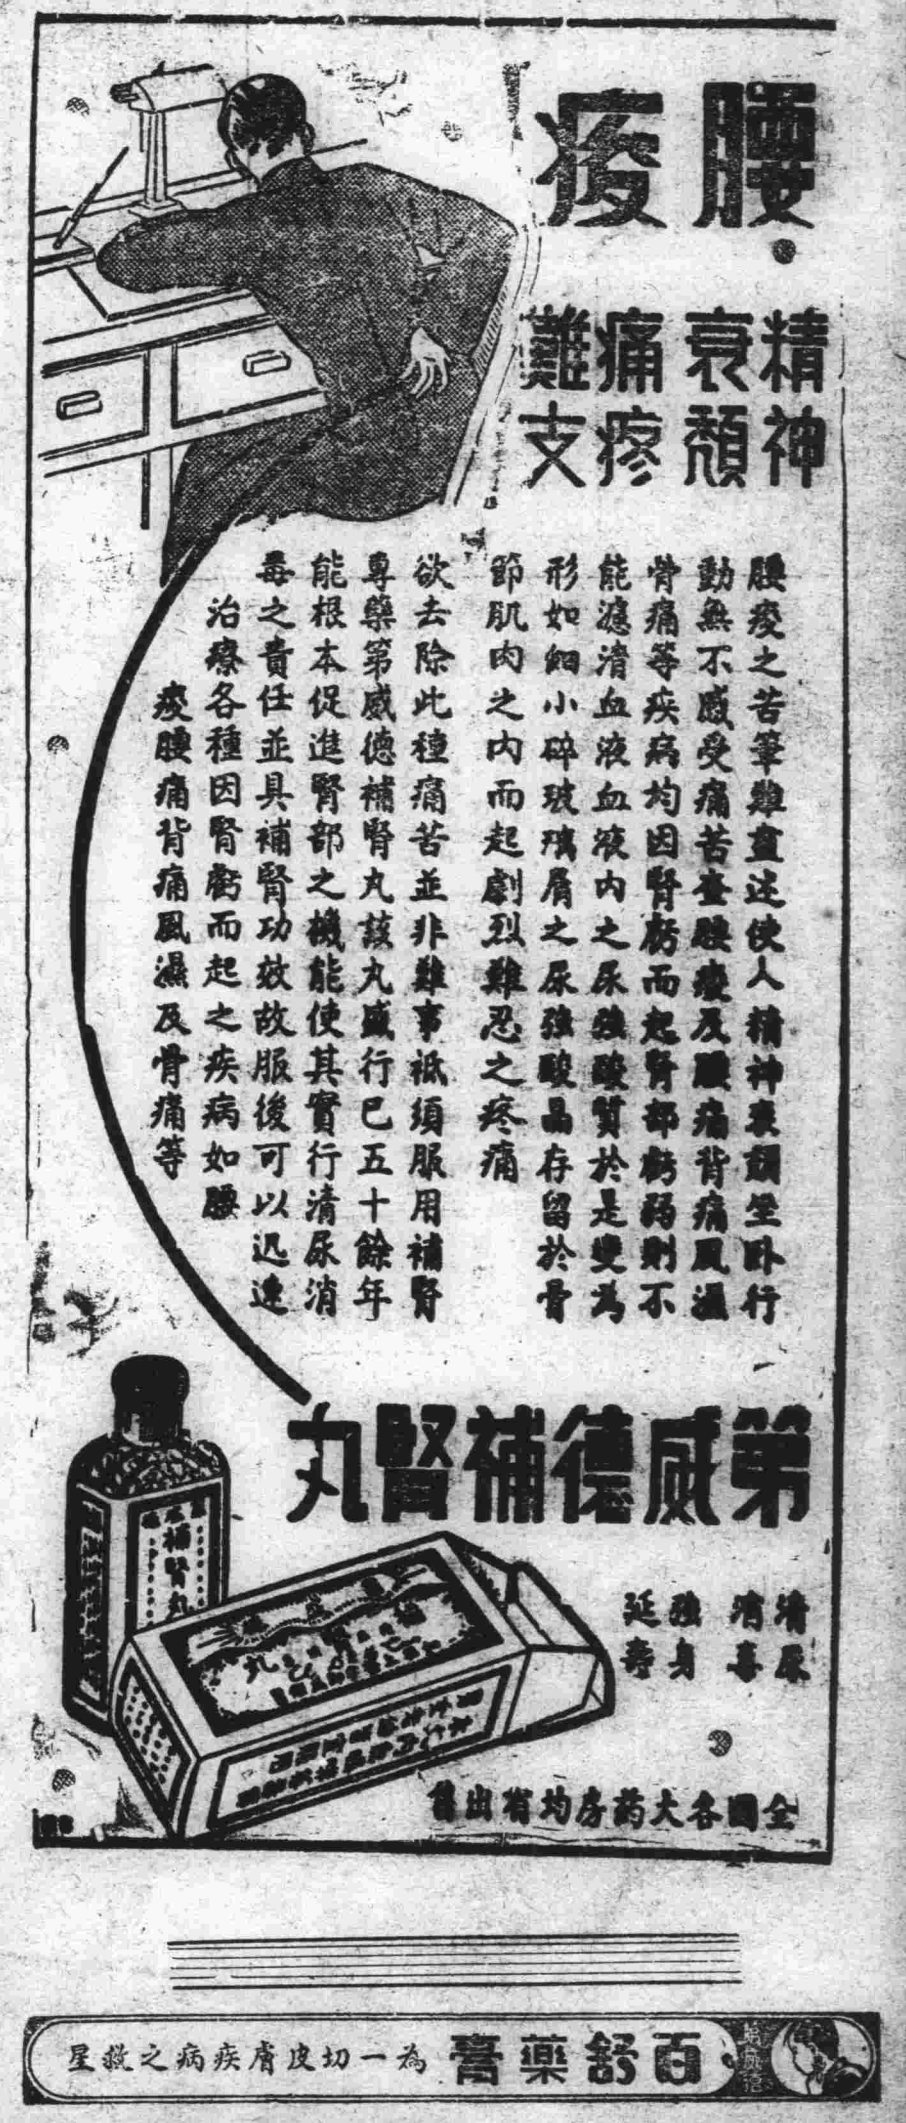 腰痠
精神衰頹
痛疼難支
腰痠之苦筆難盡述使人精神衰頹坐臥行
動無不感受痛苦查腰痠及腰痛背痛風濕
骨痛等疾病均因腎虧而起腎部虧弱則不
能濾清血液血液內之尿強酸質於是變為
形如細小碎玻璃屑之尿強酸晶存留於骨
節肌肉之內而起劇烈難忍之疼痛
欲去除此種痛苦並非難事祗須服用補腎
專藥第威德補腎丸該丸盛行已五十餘年
能根本促進腎部之機能使其實行清尿消
毒之責任並具補腎功效故服後可以迅速
治療各種因腎虧而起之疾病如腰
痠腰痛背痛風濕及骨痛等
第威德補腎丸
清尿
消毒
強身
延壽
補腎丸
全國各大药房均有出售
百舒藥膏
為一切皮膚疾病之救星